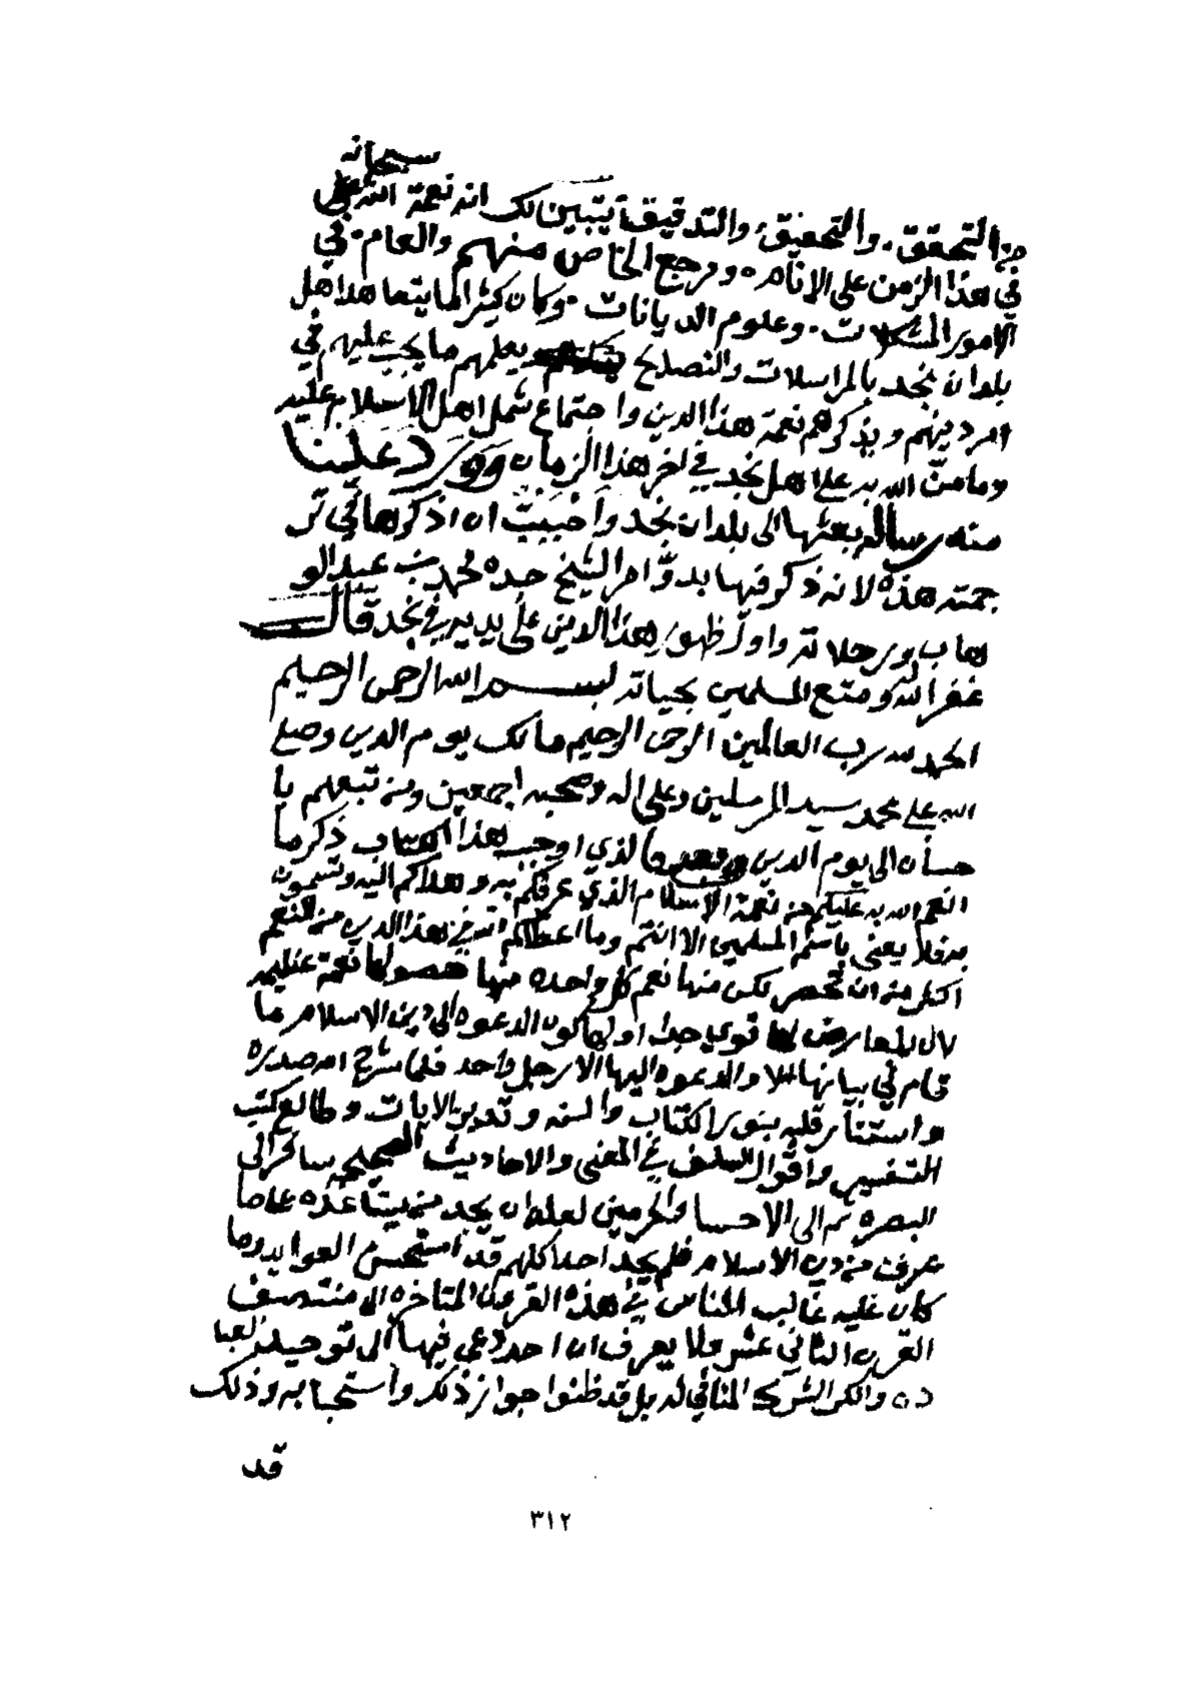 سبحانه
من التحقق. والتحقيق، والتدقيق، يتبين لك انه نعمة الله على
في هذا الزمن على الانام ٥ ومرجع الخاص منهم والعام. في
الامور المشكلات. وعلوم الديانات. وكان كثيرا ما يتعاهد اهل
بلدان نجد بالمراسلات والنصايح ويعلمهم ما يجب عليهم في
امر دينهم ويذكرهم نعمة هذا الدين واجتماع شمل اهل الاسلام عليه
وما منّ الله به على اهل نجد في اخر هذا الزمان وورد علينا
منه رسالة بعثها الى بلدان نجد وأحببتُ ان اذكرها في تر
جمته هذه لانه ذكر فيها بدوّ امر الشيخ جده محمد بن عبد الو
هاب ورحلاته واول ظهور هذا الدين على يديه في نجد قال
غفر الله له ومتع المسلمين بحياته بسم الله الرحمن الرحيم
الحمد لله رب العالمين الرحمن الرحيم مالك يوم الدين وصلى
الله على محمد سيد المرسلين وعلى اله وصحبه اجمعين ومن تبعهم با
حسان الى يوم الدين وبعد فالذي اوجب هذا الكتاب ذكر ما
انعم الله به عليكم من نعمة الاسلام الذي عرفكم به وهداكم اليه وتسمون
به فلا يعنى باسم المسلمين الا انتم وما اعطاكم الله في هذا الدين من النعم
اكثر من ان تحصر لكن منها نعم كل واحده منها حصولها نعمة عظيمه
لان المعارض لها قوي جدا اولها كون الدعوه الى دين الاسلام ما
قام في بيانها والدعوه اليها الا رجل واحد فلما شرح الله صدره
واستنار قلبه بنور الكتاب والسنه وتدبر الايات وطالع كتب
التفسير واقوال السلف في المعنى والاحاديث الصحيحه سافر الى
البصره ثم الى الاحسا والحرمين لعله ان يجد من يساعده على ما
عرف من دين الاسلام فلم يجد احدا كلهم قد استحسن العوايد وما
كان عليه غالب الناس في هذه القرون المتاخره الى منتصف
القرن الثاني عشر ولا يعرف ان احد دعى فيها الى توحيد العبا
ده وانكر الشرك المنافي له بل قد ظنوا جواز ذلك واستحبابه وذلك
قد
٣١٢